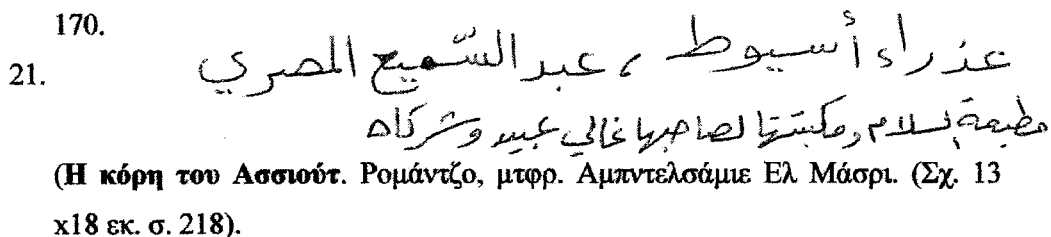 170.
21. عذراء أسيوط ، عبد السّميع المصري
مطبعة السلام ومكتبتها لصاحبها غالي عبيد وشركاه
(Η κόρη του Ασσιούτ. Ρομάντζο, μτφρ. Αμπντελσάμιε Ελ Μάσρι. (Σχ. 13
x18 εκ. σ. 218).